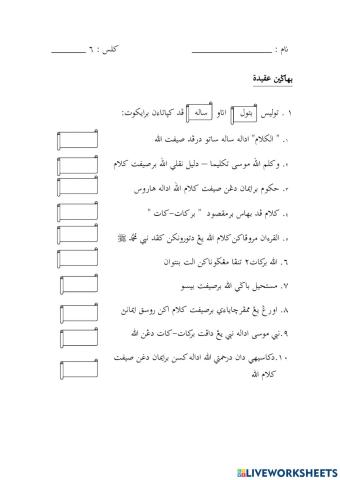 نام : ____________ كلس : ٦ ______
بهاڬين عقيدة
١ . توليس بتول اتاو ساله ڤد كياتاءن برايكوت:
١. " الكلام" اداله ساله ساتو درڤد صيفت الله
٢. وكلم الله موسى تكليما – دليل نقلي الله برصيفت كلام
٣. حكوم برايمان دڠن صيفت كلام الله اداله هاروس
٤. كلام ڤد بهاس برمقصود " بركات-كات "
٥. القرءان مروڤاكن كلام الله يڠ دتورونكن كڤد نبي محمد ﷺ
٦. الله بركات٢ تنڤا مڠݢوناكن الت بنتوان
٧. مستحيل باݢي الله برصيفت بيسو
٨. اورڠ يڠ ممڤرچاياءي برصيفت كلام اكن روسق ايمانن
٩. نبي موسى اداله نبي يڠ داڤت بركات-كات دڠن الله
١٠. دكاسيهي دان درحمتي الله اداله كسن برايمان دڠن صيفت
كلام الله
LIVEWORKSHEETS